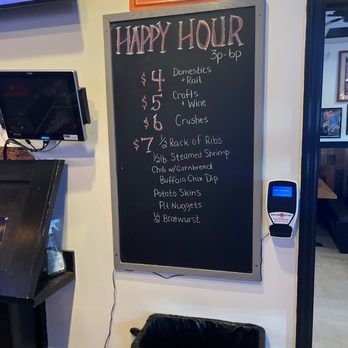 HAPPY HOUR
3p-6p
$4 Domestics + Rail
$5 Crafts + Wine
$6 Crushes
$7 1/2 Rack of Ribs
1/2 lb Steamed Shrimp
Chili w/ Cornbread
Buffalo Chix Dip
Potato Skins
Pit Nuggets
1/2 Bratwurst